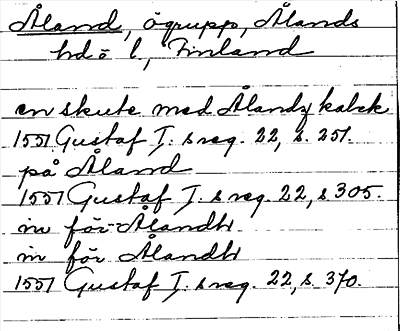 Åland, ögrupp, Ålands
hd o l, Finland
en skute med Ålandz kalck
1551 Gustaf I. s reg. 22, s. 251.
på Åland
1551 Gustaf I. s reg. 22, s 305.
in för Ålandh
in för Ålandh
1551 Gustaf I. s reg. 22, s. 370.